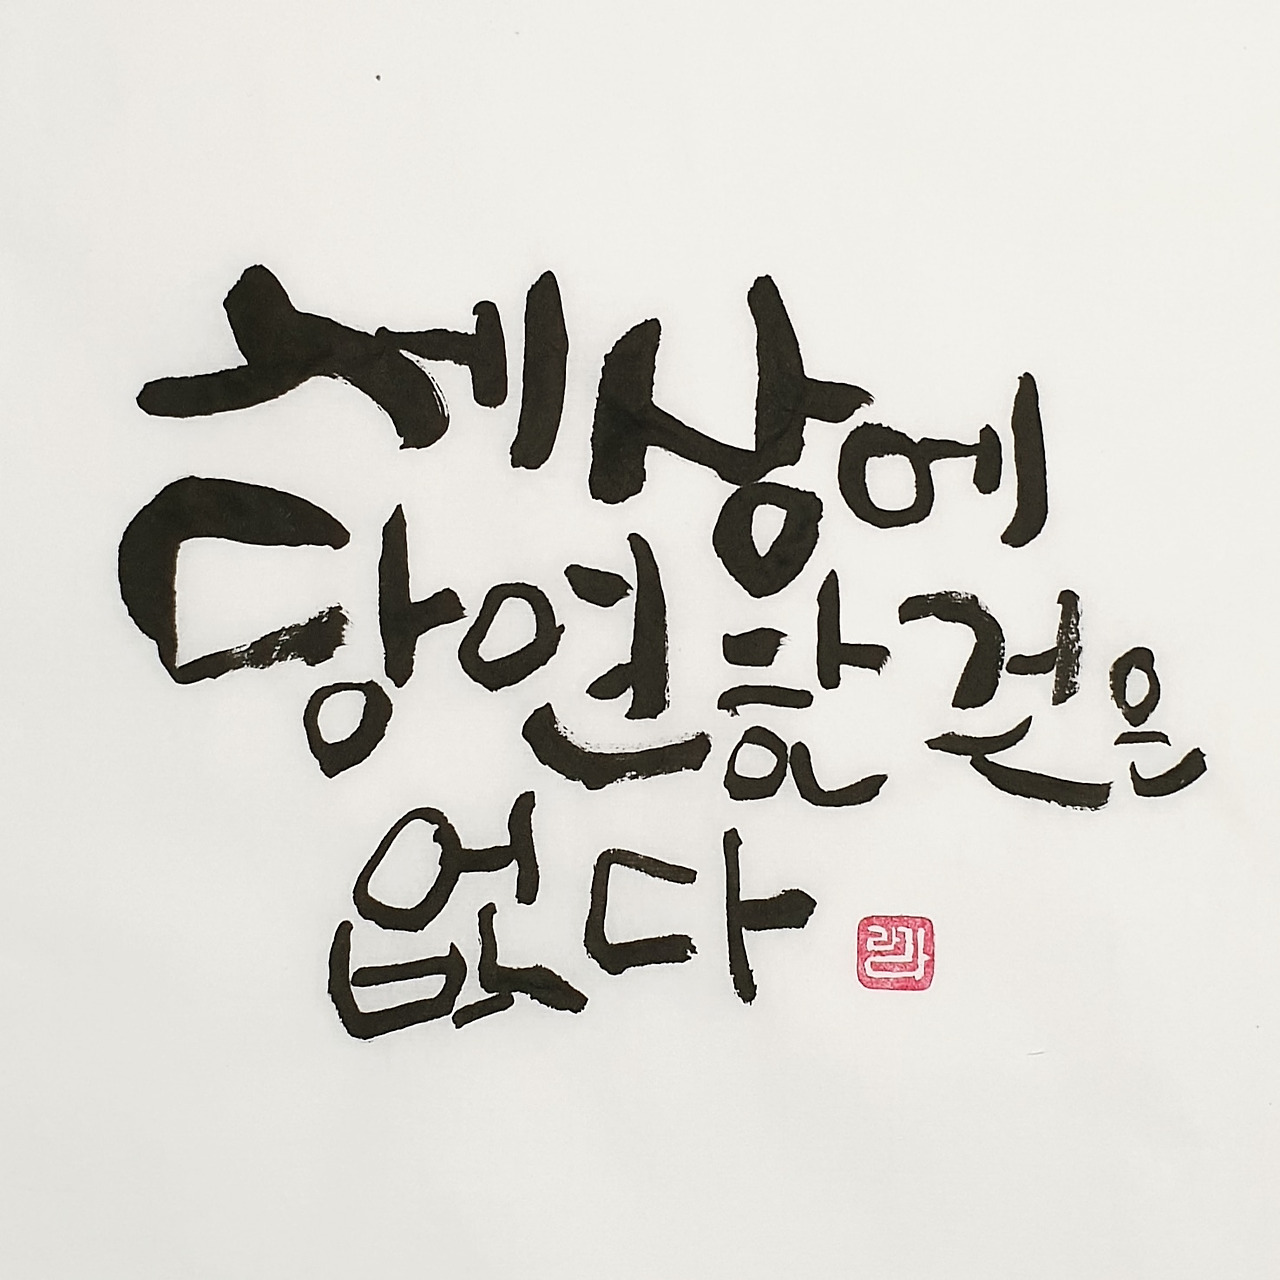 세상에
당연한 것은
없다